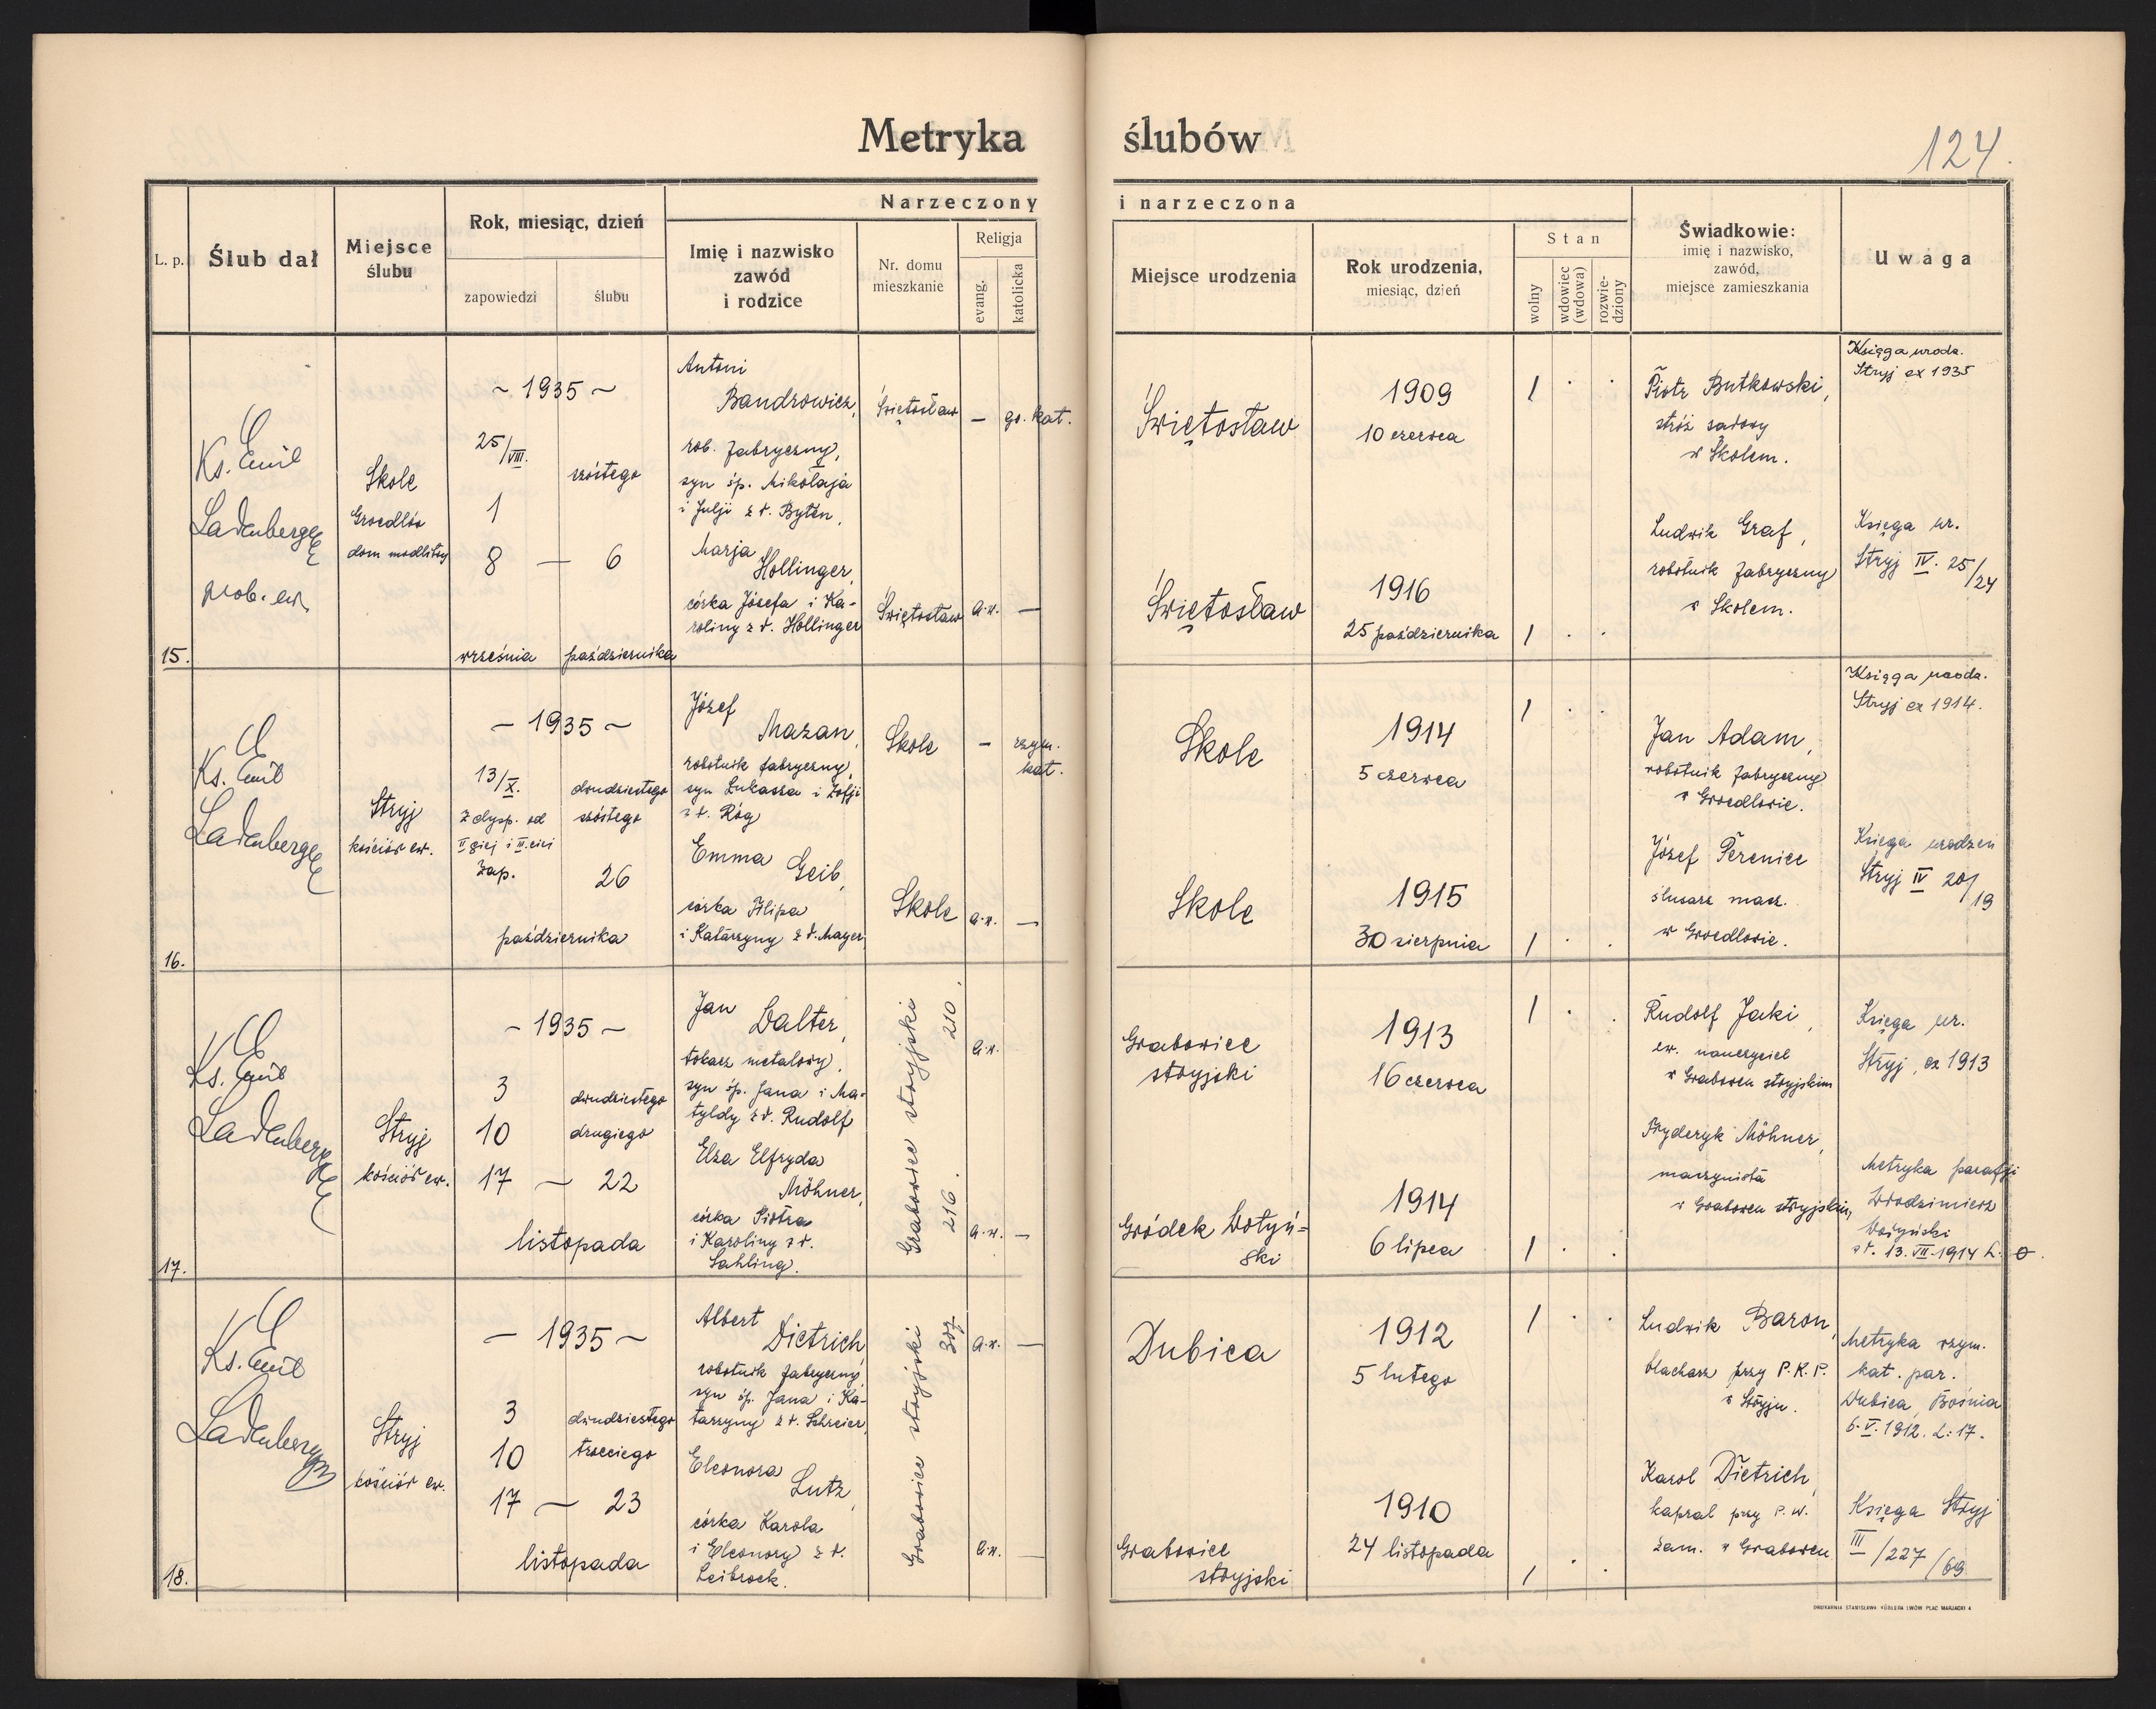 Metryka ślubów
124.
Narzeczony i narzeczona
L. p.
Ślub dał
Miejsce
ślubu
Rok, miesiąc, dzień
zapowiedzi
ślubu
Imię i nazwisko
zawód
i rodzice
Nr. domu
mieszkanie
Religja
evang.
katolicka
Miejsce urodzenia
Rok urodzenia,
miesiąc, dzień
Stan
wolny
wdowiec
(wdowa)
rozwie-
dziony
Świadkowie:
imię i nazwisko,
zawód,
miejsce zamieszkania
Uwaga
15.
Ks. Emil
Ladenberger
prob. ew.
Skole
Groedlów
dom modlitwy
~ 1935 ~
25/VIII.
1
8 — 6
szóstego
września
października
Antoni
Bandrowicz,
rob. fabryczny,
syn śp. Mikołaja
i Julji z d. Byten,
Marja
Hollinger,
córka Józefa i Ka-
roliny z d. Hollinger
Świętosław
— gr. kat.
Świętosław
a.w. —
Świętosław
1909
10 czerwca
1 . .
Świętosław
1916
25 października
1 . .
Piotr Butkowski,
stróż sądowy
w Skolem.
Ludwik Graf,
robotnik fabryczny
w Skolem.
Księga urodz.
Stryj ex 1935
Księga ur.
Stryj IV. 25/24
16.
Ks. Emil
Ladenberger
Stryj
kościół ew.
~ 1935 ~
13/X.
z dysp. od
II giej i III. ciej
zap.
dwudziestego
szóstego
26
października
Józef
Mazan,
robotnik fabryczny,
syn Łukasza i Zofji
z d. Róg
Emma Geib,
córka Filipa
i Katarzyny z d. Mayer
Skole
— rzym.
kat.
Skole
a.w. —
Skole
1914
5 czerwca
1 . .
Skole
1915
30 sierpnia
1 . .
Jan Adam,
robotnik fabryczny
w Groedlowie.
Józef Perenice
ślusarz masz.
w Groedlowie.
Księga urodz.
Stryj ex 1914.
Księga urodzeń
Stryj IV 20/19
17.
Ks. Emil
Ladenberger
Stryj
kościół ew.
~ 1935 ~
3
10
17 — 22
dwudziestego
drugiego
listopada
Jan Walter,
tokarz metalowy,
syn śp. Jana i Ma-
tyldy z d. Rudolf
Elza Elfryda
Möhner,
córka Piotra
i Karoliny z d.
Sahling.
Grabowiec stryjski
210.
216.
a.w.
a.w. —
Grabowiec
stryjski
1913
16 czerwca
1 . .
Gródek Wołyń-
ski
1914
6 lipca
1 . .
Rudolf Jaki,
ew. nauczyciel
w Grabowcu stryjskim
Fryderyk Möhner,
maszynista
w Grabowcu stryjskim,
Księga ur.
Stryj, ex 1913
Metryka parafji
Włodzimierz
Wołyński
z d. 13. VII. 1914 L. 0.
18.
Ks. Emil
Ladenberger
Stryj
kościół ew.
— 1935 ~
3
10
17 — 23
dwudziestego
trzeciego
listopada
Albert
Dietrich,
robotnik fabryczny,
syn śp. Jana i Ka-
tarzyny z d. Schreier,
Eleonora
Lutz,
córka Karola
i Eleonory z d.
Leibrock.
Grabowiec stryjski
307
a.w. —
a.w. —
Dubica
1912
5 lutego
1 . .
Grabowiec
stryjski
1910
24 listopada
1 . .
Ludwik Baron,
blacharz przy P.K.P.
w Stryju.
Karol Dietrich,
kapral przy P.W.
zam. w Grabowcu
Metryka rzym.
kat. par.
Dubica, Bośnia
6. V. 1912. L: 17.
Księga Stryj
III/227/69
DRUKARNIA STANISŁAWA KÖHLERA LWÓW PLAC MARJACKI 4